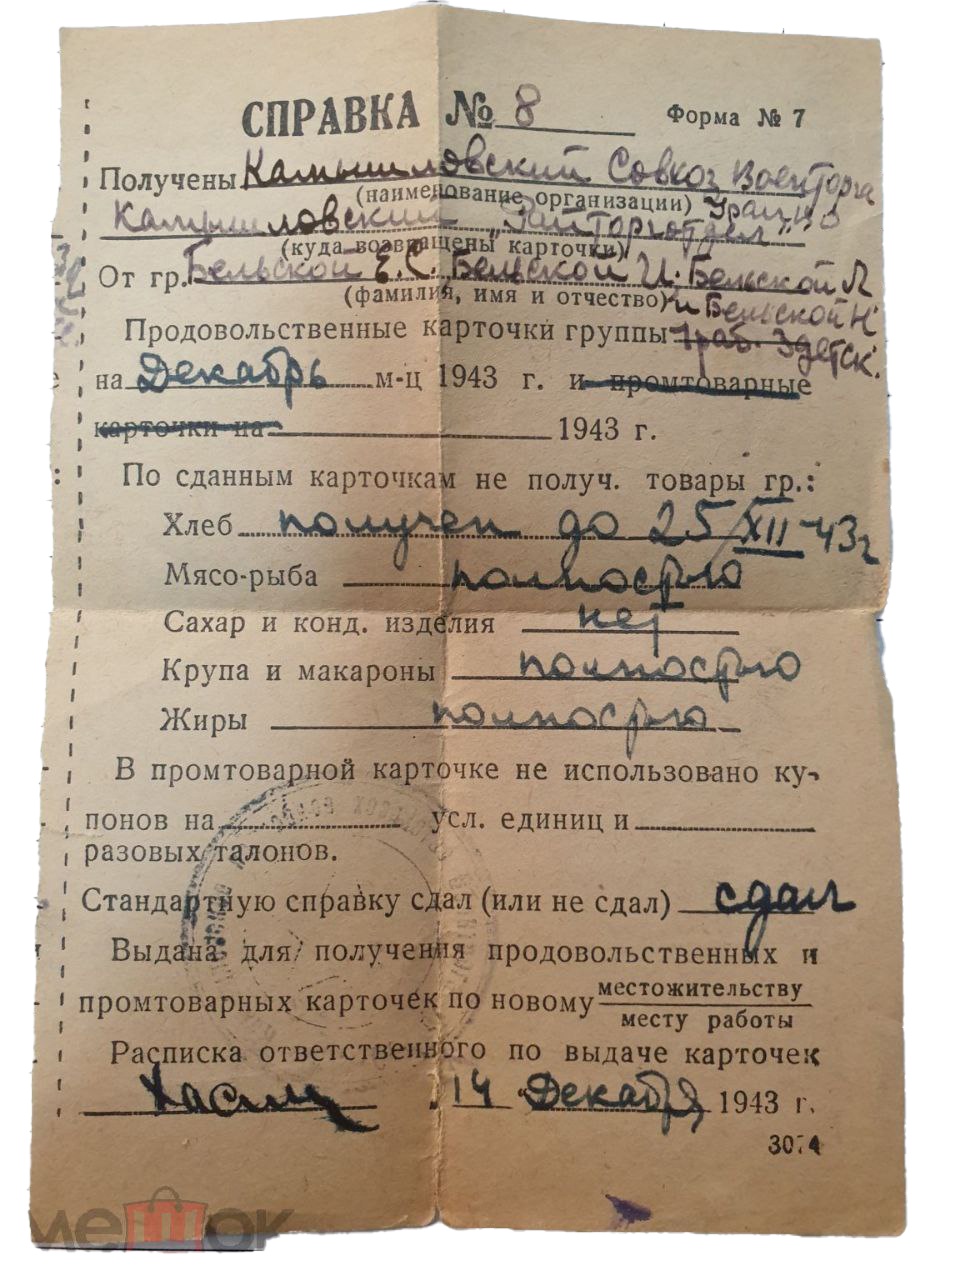 СПРАВКА № 8 Форма № 7
Получены Камышловский Совхоз Военторга
(наименование организации)
Камышловский "Райторготдел"
(куда возвращены карточки)
От гр. Бельской Е.С. Бельской И. Бельской Л
(фамилия, имя и отчество) и Бельской Н
Продовольственные карточки группы 1 раб. 3 детск.
на Декабрь м-ц 1943 г. и промтоварные
карточки на 1943 г.
По сданным карточкам не получ. товары гр.:
Хлеб получен до 25/XII-43 г
Мясо-рыба полностью
Сахар и конд. изделия нет
Крупа и макароны полностью
Жиры полностью
В промтоварной карточке не использовано ку-
понов на усл. единиц и
разовых талонов.
Стандартную справку сдал (или не сдал) сдал
Выдана для получения продовольственных и
промтоварных карточек по новому местожительству
месту работы
Расписка ответственного по выдаче карточек
14 Декабря 1943 г.
3074
мешок